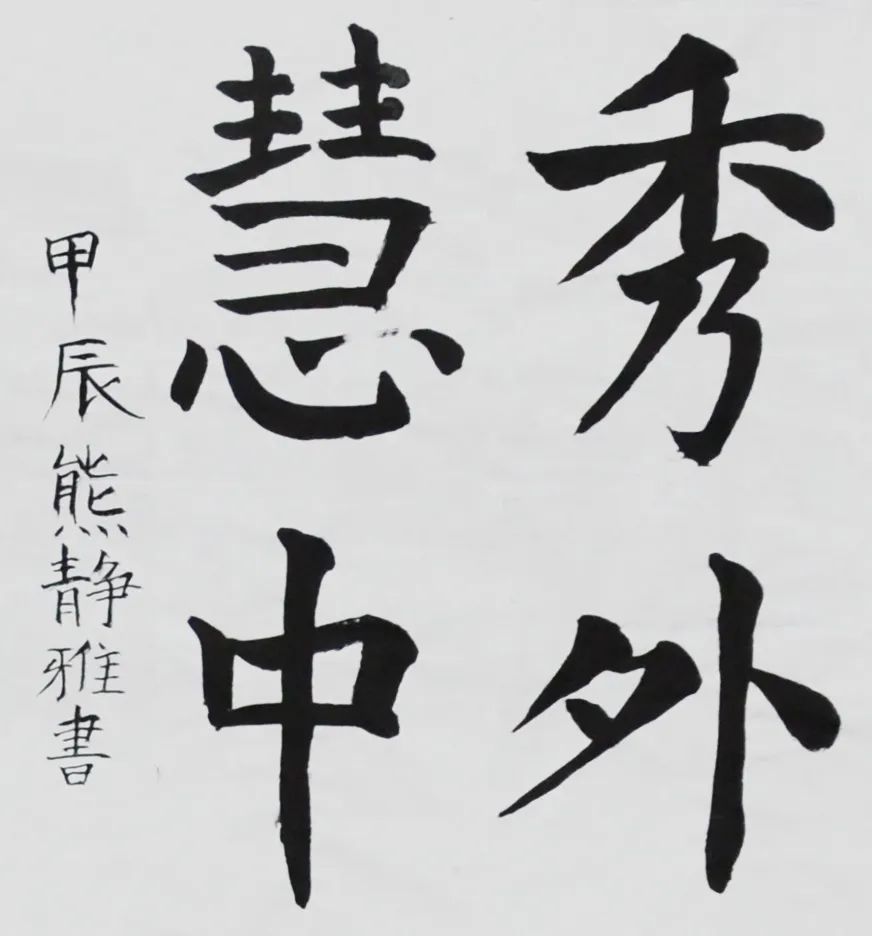 秀外
慧中
甲辰熊静雅書